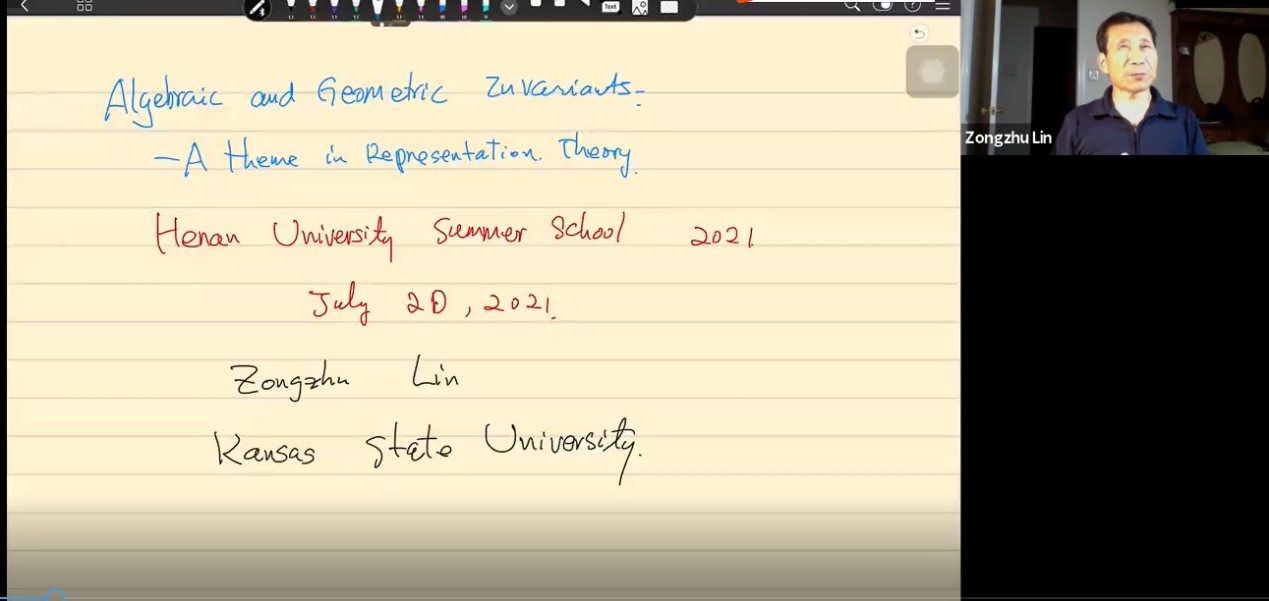 Text
Algebraic and Geometric Invariants-
-A theme in Representation. Theory.
Henan University Summer School 2021
July 20, 2021.
Zongzhu Lin
Kansas State University.
Zongzhu Lin